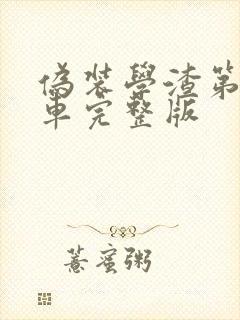 偽裝學渣第
車完整版
薏蜜粥